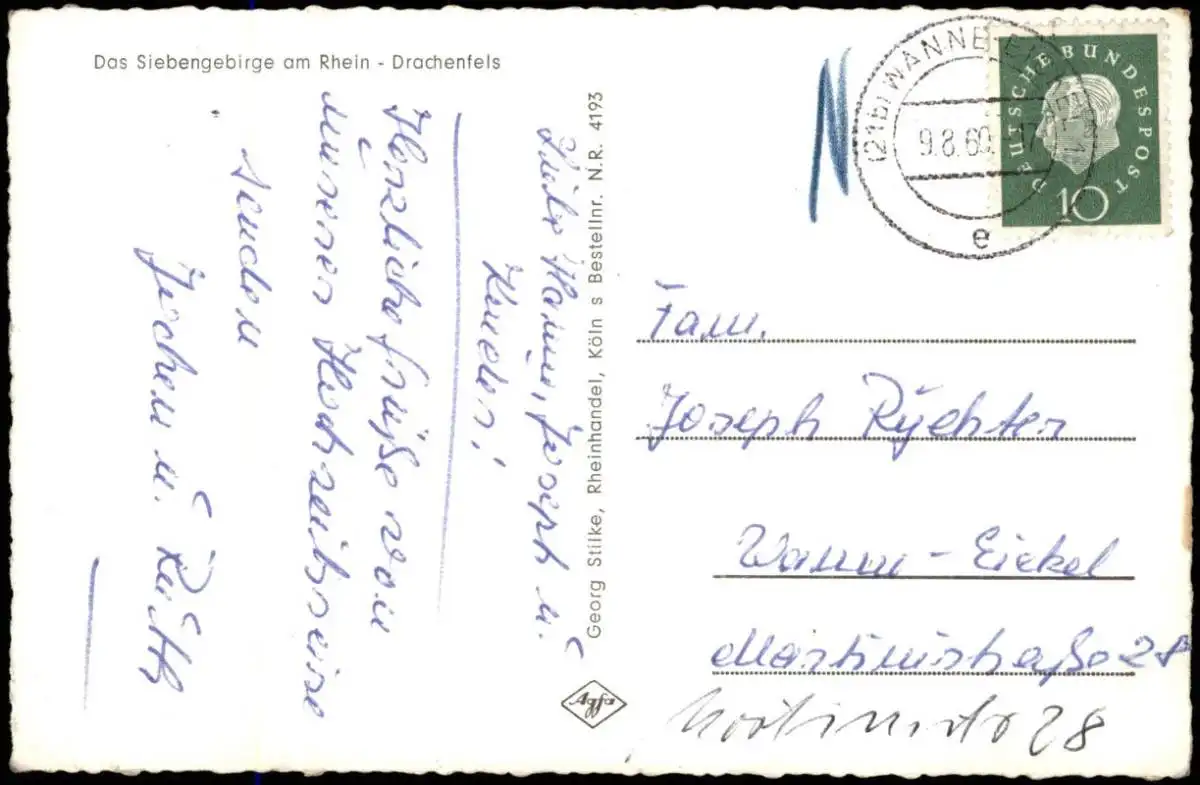 Das Siebengebirge am Rhein - Drachenfels
Liebe Hanni, Joseph u.
Kinder!
Herzliche Grüße von
unserer Hochzeitsreise
senden
Jochen u. Ruth
Georg Stilke, Rheinhandel, Köln s Bestellnr. N.R. 4193
Agfa
N
(21b) WANNE-EICKEL 1
9.8.60.-17
e
DEUTSCHE BUNDESPOST
10
Fam.
Joseph Rychter
Wanne-Eickel
Martinistraße 28
28